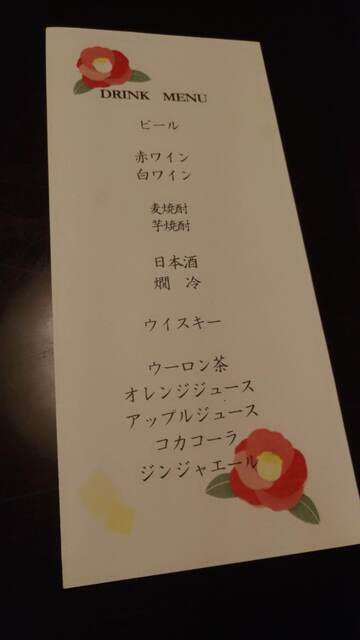 DRINK MENU
ビール
赤ワイン
白ワイン
麦焼酎
芋焼酎
日本酒
燗 冷
ウイスキー
ウーロン茶
オレンジジュース
アップルジュース
コカコーラ
ジンジャエール